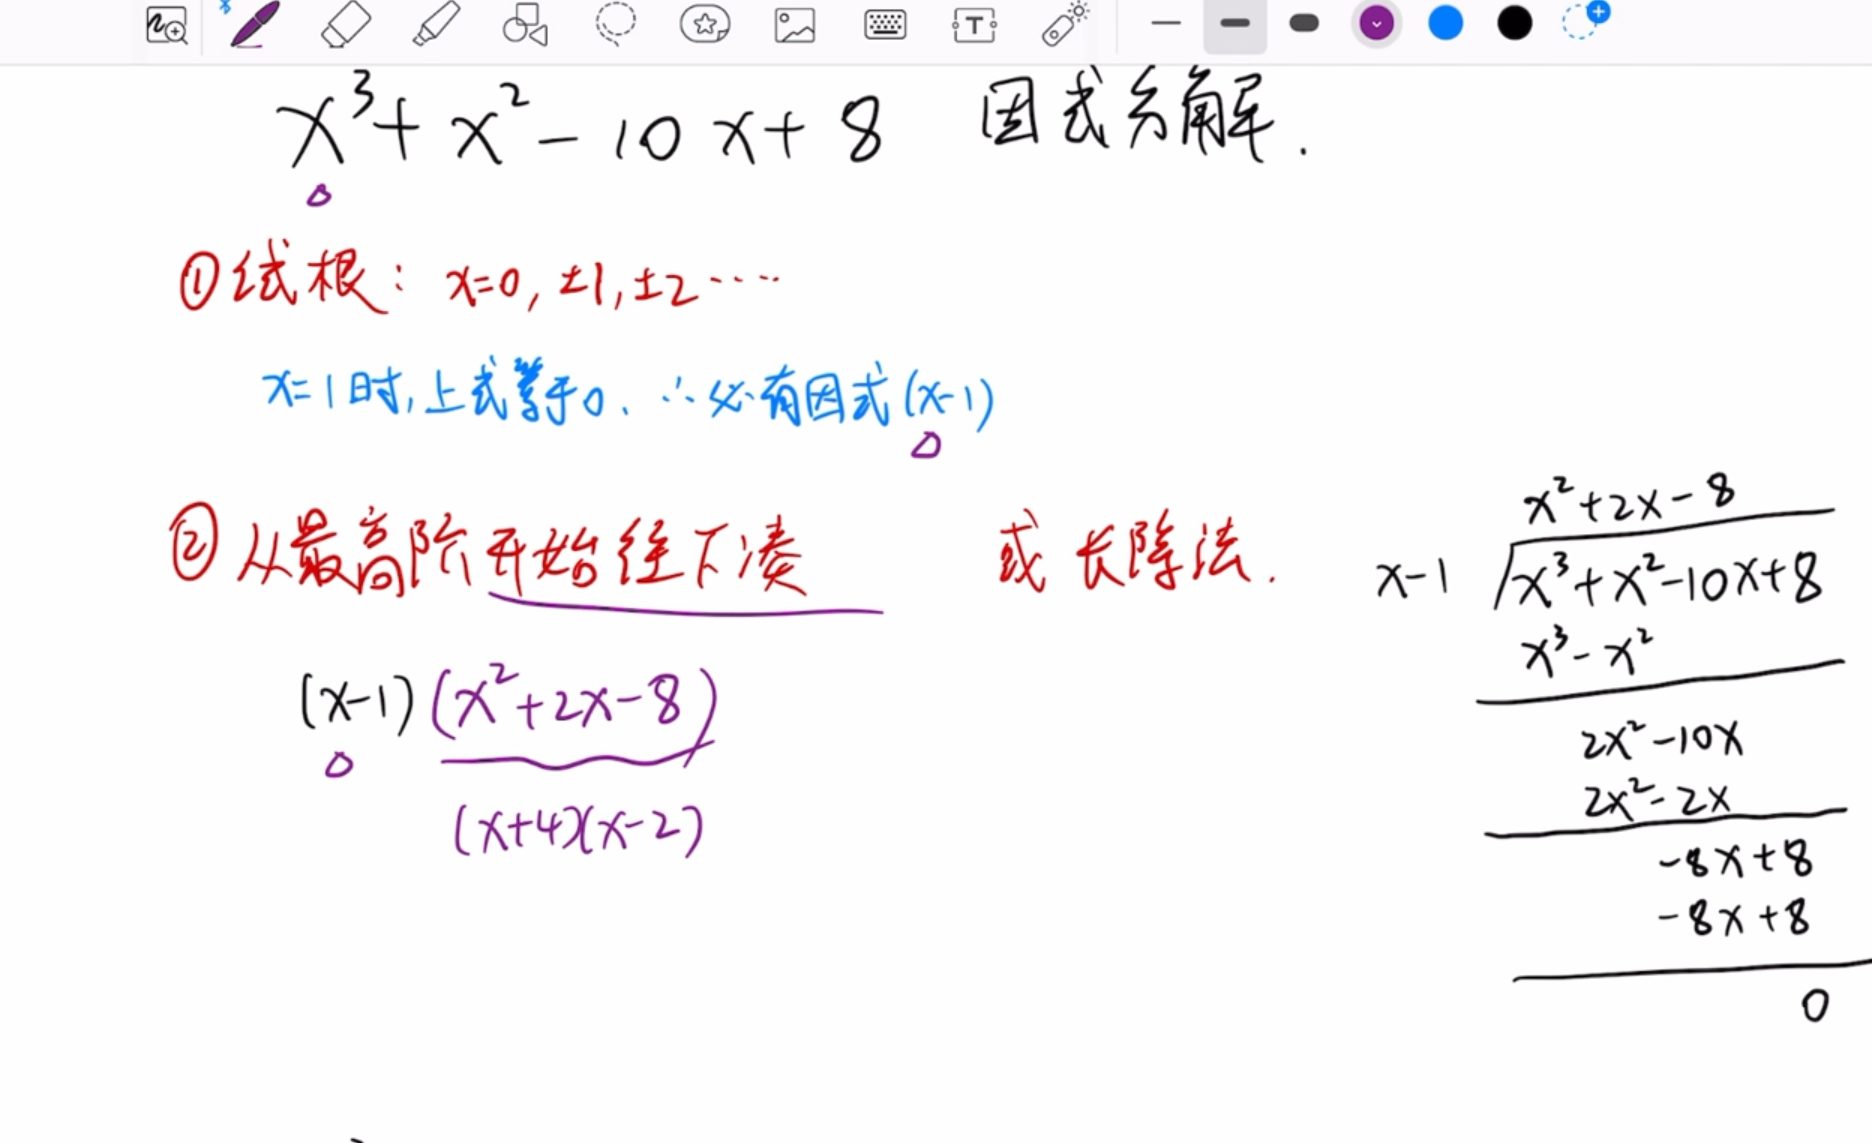 x³+x²-10x+8 因式分解.
①试根: x=0, ±1, ±2……
x=1时, 上式等于0. ∴必有因式(x-1)
②从最高阶开始往下凑 或长除法.
(x-1)(x²+2x-8)
(x+4)(x-2)
x²+2x-8
x-1 x³+x²-10x+8
x³-x²
2x²-10x
2x²-2x
-8x+8
-8x+8
0